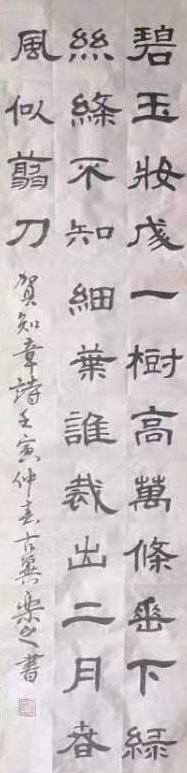 碧玉妝成一樹高萬條垂下綠
絲絛不知細葉誰裁出二月春
風似翦刀
賀知章詩壬寅仲春古冀樂之書